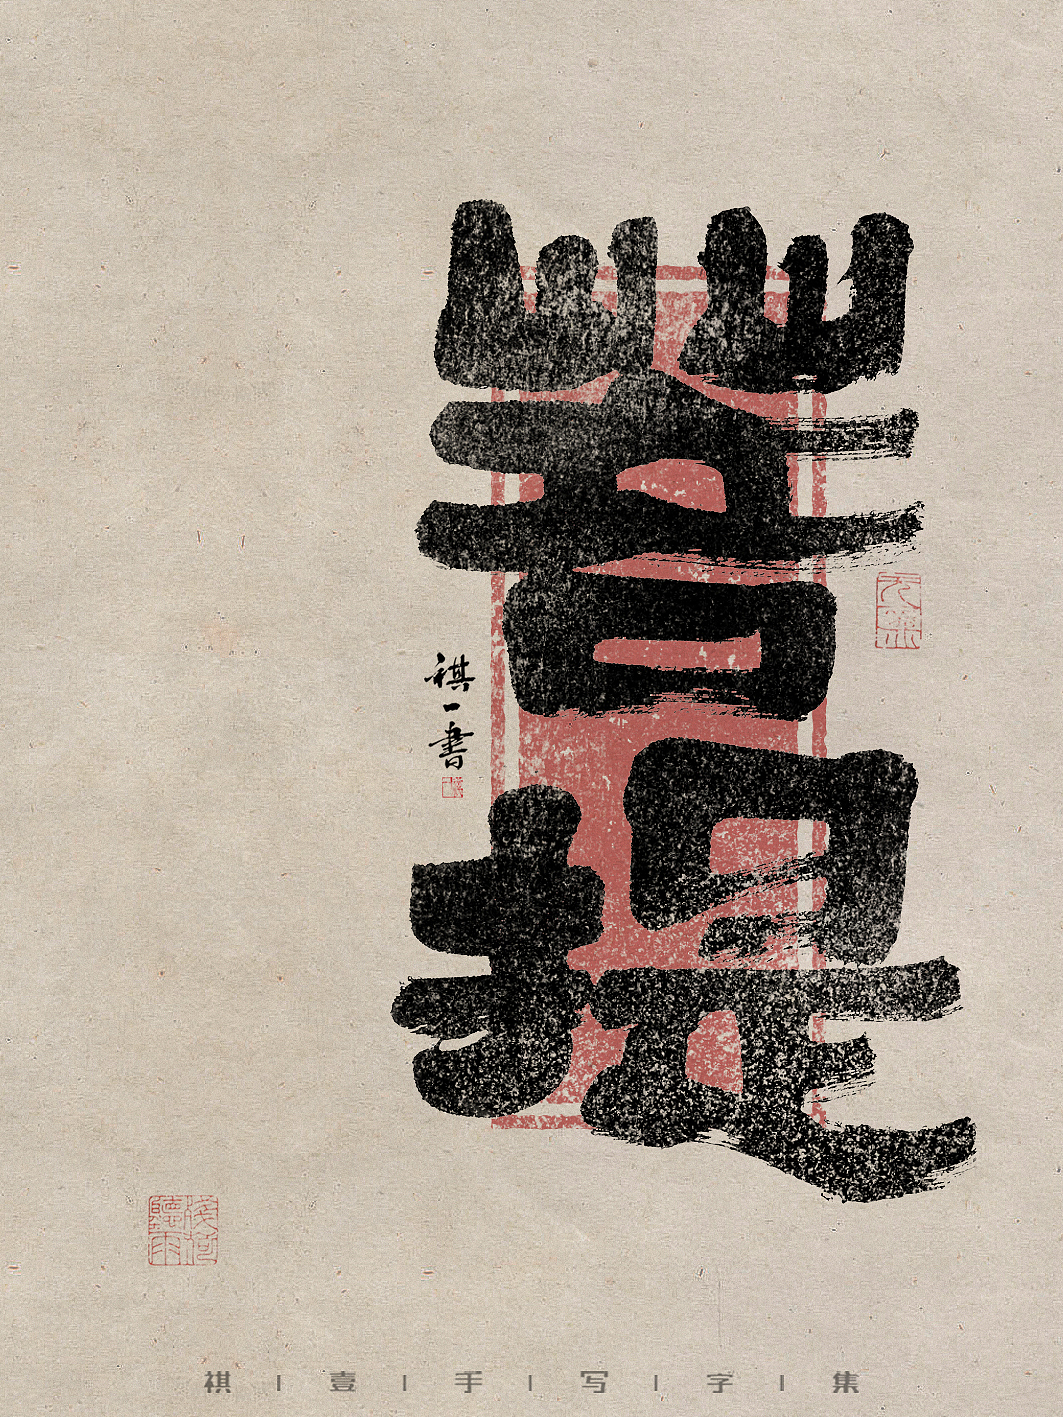 菩提
祺一書
祺 | 壹 | 手 | 写 | 字 | 集